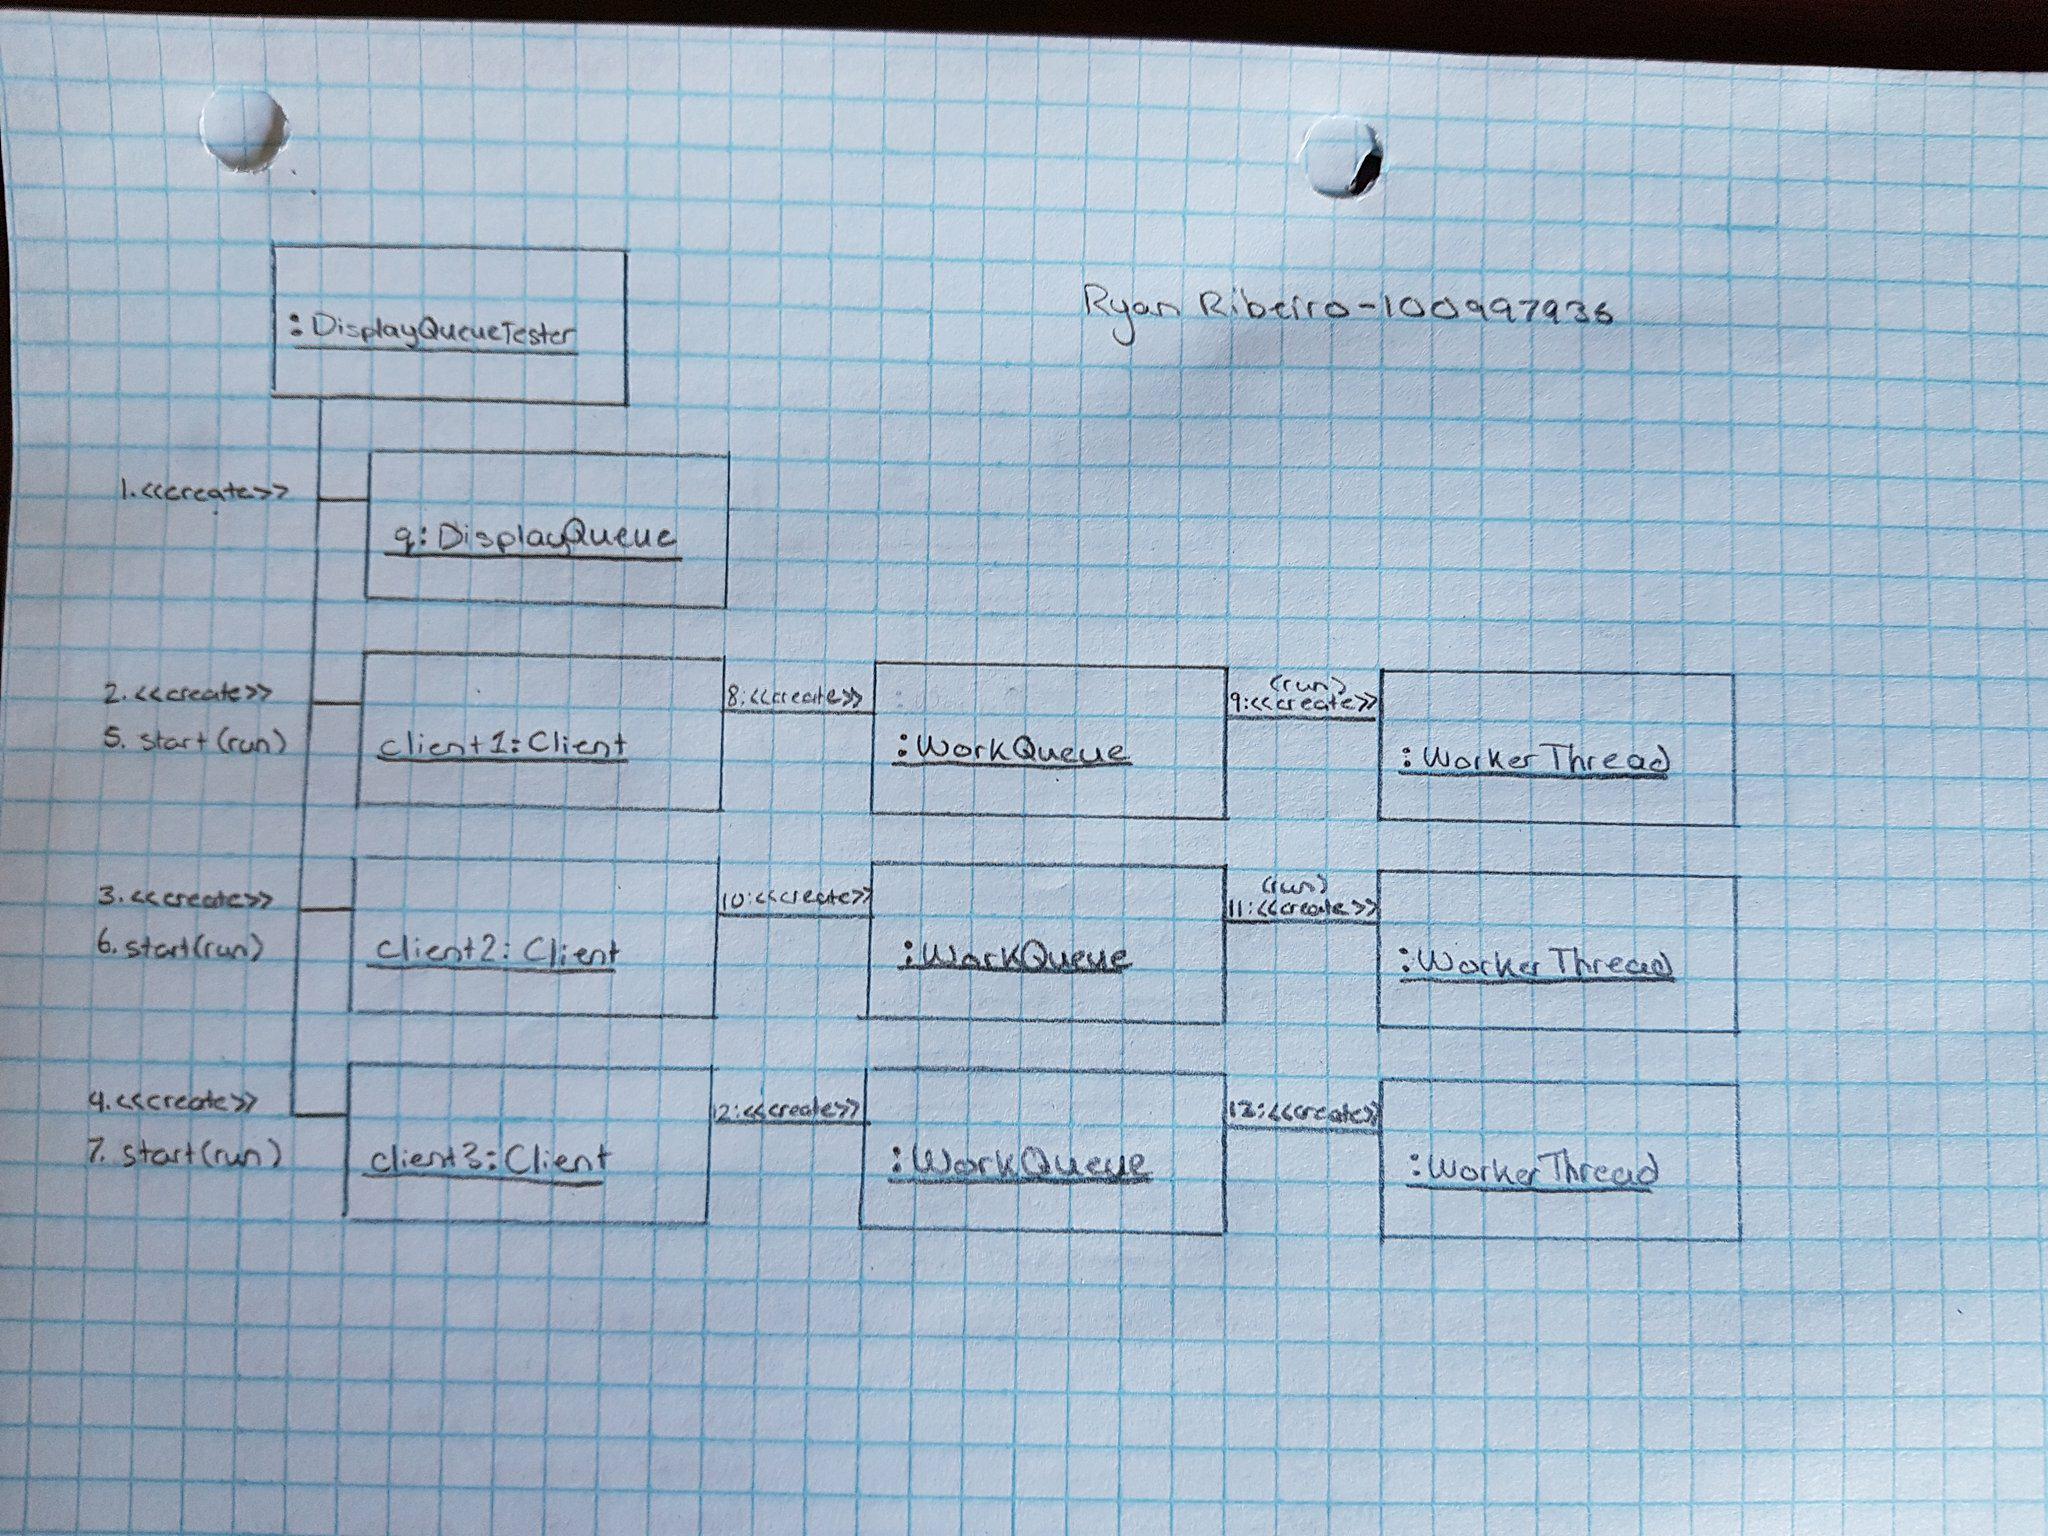 Ryan Ribeiro-100997936
:DisplayQueueTester
1.<<create>>
q:DisplayQueue
2.<<create>>
5. start(run)
client1:Client
8:<<create>>
:WorkQueue
(run)
9:<<create>>
:WorkerThread
3.<<create>>
6. start(run)
client2:Client
10:<<create>>
:WorkQueue
(run)
11:<<create>>
:WorkerThread
4.<<create>>
7. start(run)
client3:Client
12:<<create>>
:WorkQueue
13:<<create>>
:WorkerThread